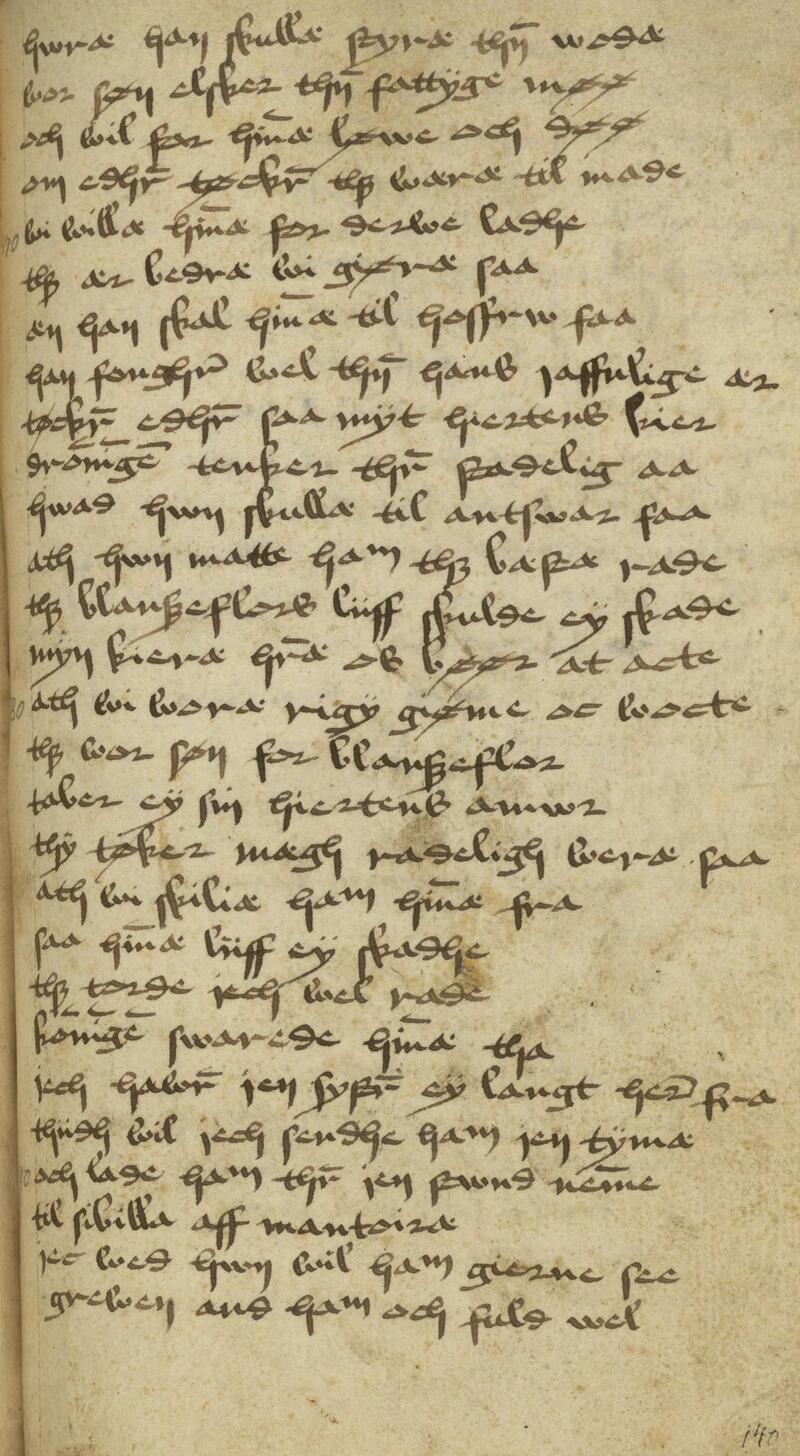 hwræ han skullæ styræ thn̄ wodæ
wor søn elsker thn̄ fattyge møø
och wil for hin̄æ løwe och døø
om edhr̄ tøckr̄ thꝫ waræ til made
wi willæ hin̄æ forderwe ladhe
thꝫ ær bedræ wi giøræ saa
æn han skal hin̄æ til hosfrw faa
han fonghr̄ wel thn̄ hans jaffnlige ær
tøckr̄ edhr̄ saa myt hiertens kier
dronīgē tenker thr̄ stadelig aa
hwad hwn skullæ til antswar faa
ath hwn matte ham thꝫ bæstæ rade
thꝫ blanꝫeflors liiff skulde ey skade
myn kieræ hr̄æ os bøør at acte
ath wi woræ rigy giøme oc wocte
thꝫ wor søn for blanꝫeflor
taber ey sin hiertens amwr
thy tøker mægh radeligh weræ saa
ath wi skiliæ ham hin̄æ fra
saa hin̄æ liiff ey skadhe
thꝫ torde jech wel rade
konīgē swarede hin̄æ tha
jech hawr̄ jen systr̄ ey langt her fra
thiidh wil jech sendhe ham jen tymæ
och lade ham thr̄ jen stwnd nēme
til sibilla aff mantoiræ
jec wed hwn wil ham gierne see
grewen and ham och fuld wel
140